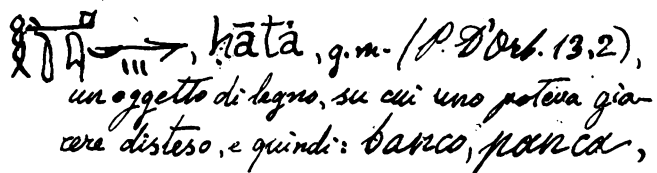 , ḥātà, g. m. (P. D'Orb. 13,2),
un oggetto di legno, su cui uno poteva gia-
cere disteso, e quindi: banco, panca,